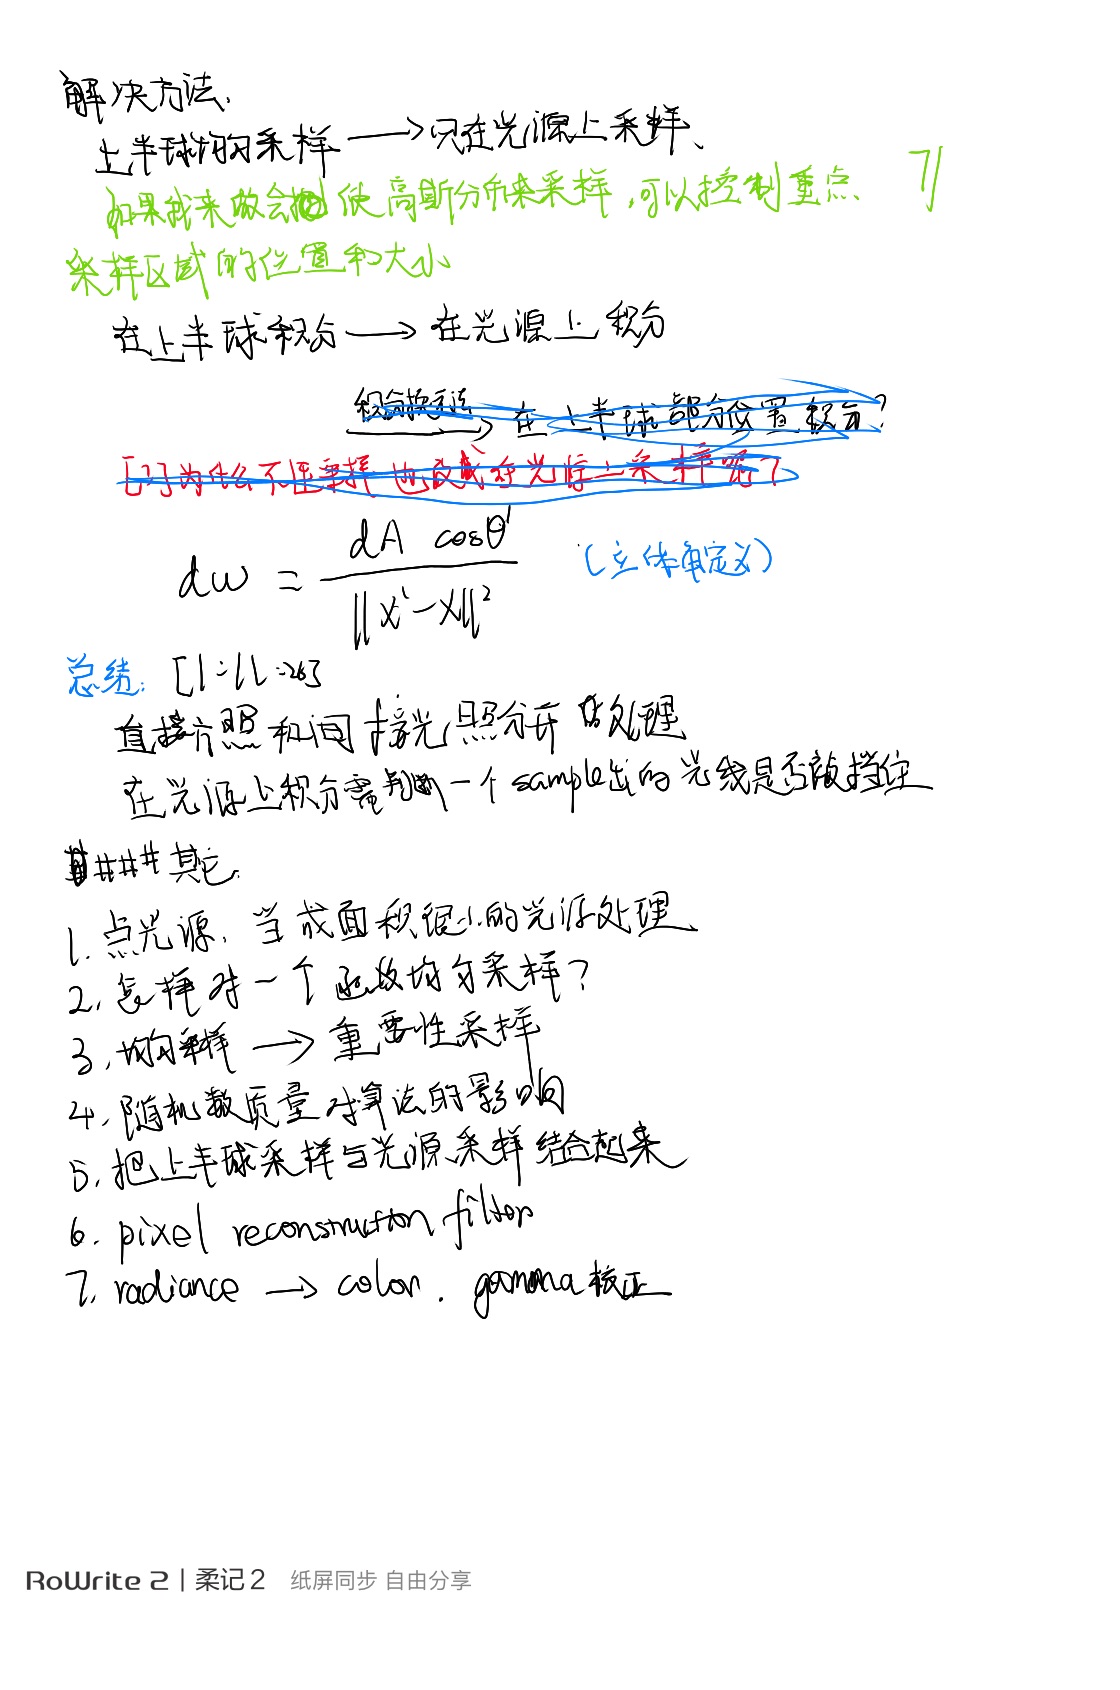 解决方法.
上半球均匀采样 ⟶ 只在光源上采样、
如果我来做会 使高斯分布来采样,可以控制重点
采样区域的位置和大小
在上半球积分 ⟶ 在光源上积分
积分换元法 在上半球部分位置积分?
[?]为什么不 采样 也改成在光源上采样呢?
dω = dA cosθ' / ||x'-x||² (立体角定义)
总结: [1:11:26]
直接光照和间接光照分开 处理
在光源上积分需判断一个sample出的光线是否被挡住
####其它.
1. 点光源、当成面积很小的光源处理、
2. 怎样对一个函数均匀采样?
3. 均匀采样 ⟶ 重要性采样
4. 随机数质量对算法的影响
5. 把上半球采样与光源采样结合起来
6. pixel reconstruction filter
7. radiance ⟶ color. gamma校正
RoWrite 2 | 柔记 2 纸屏同步 自由分享